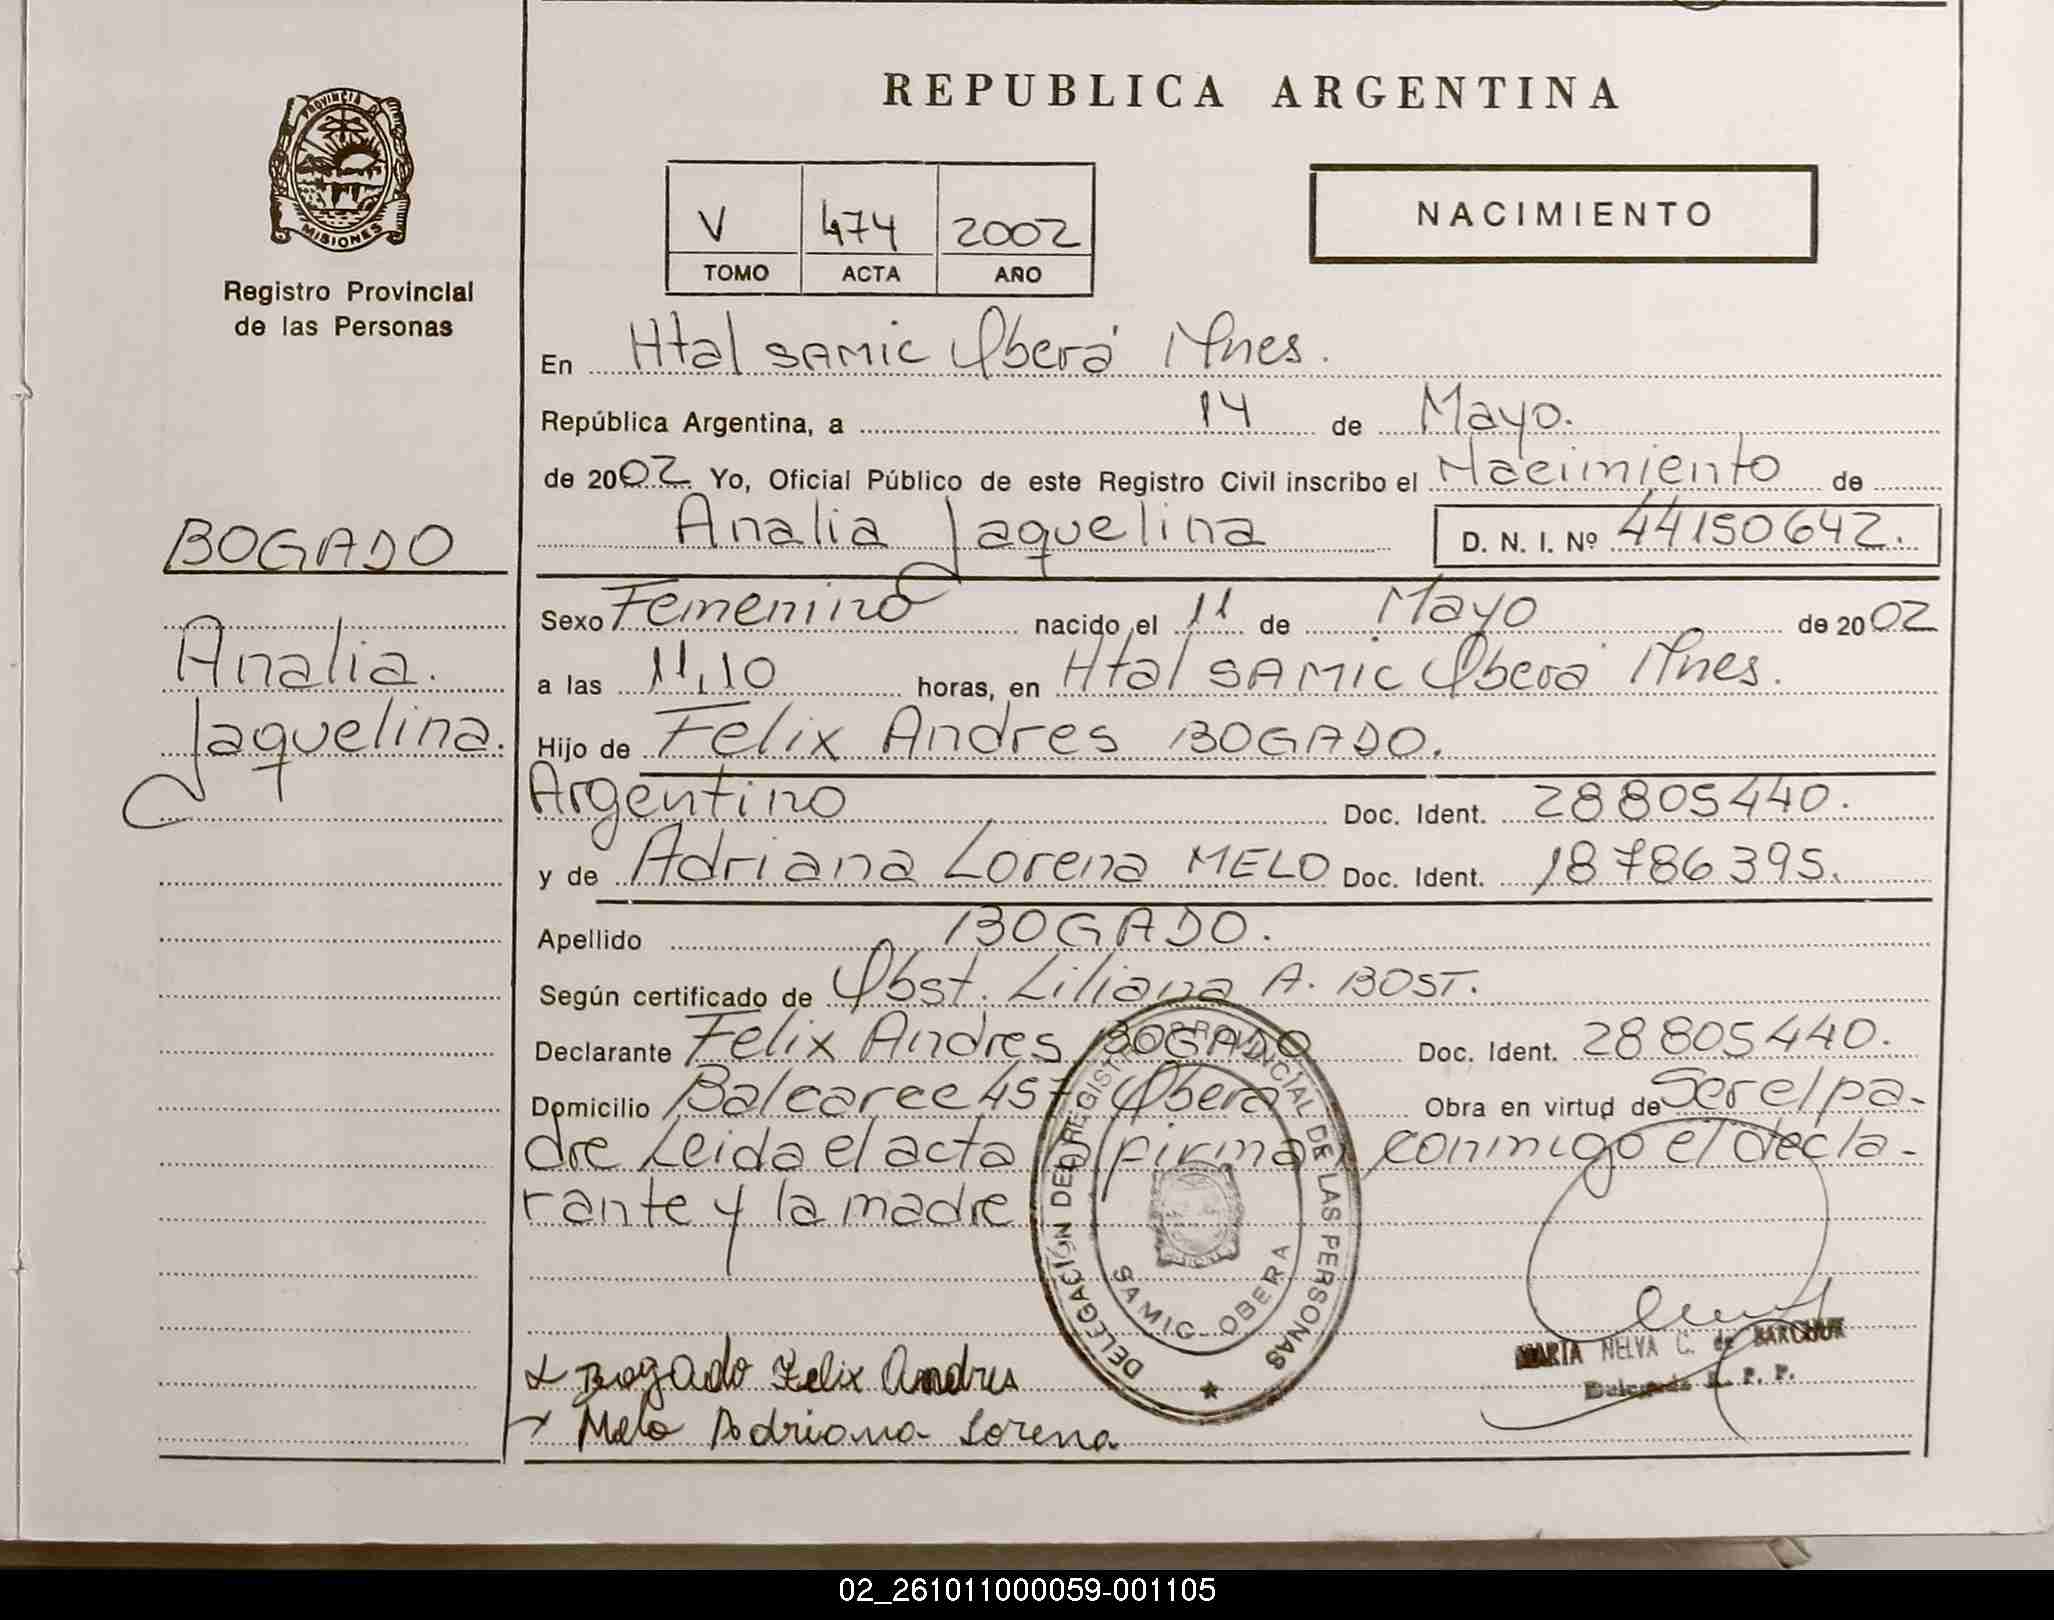 REPUBLICA ARGENTINA
PROVINCIA D
MISIONES
Registro Provincial
de las Personas
V 474 2002
TOMO ACTA AÑO
NACIMIENTO
En Htal SAMIC Oberá Mnes.
República Argentina, a 14 de Mayo.
de 2002 Yo, Oficial Público de este Registro Civil inscribo el Nacimiento de
Analia Jaquelina D. N. I. Nº 44150642.
BOGADO
Analia.
Jaquelina.
Sexo Femenino nacido el 11 de Mayo de 2002
a las 11,10 horas, en Htal SAMIC Oberá Mnes.
Hijo de Felix Andres BOGADO.
Argentino Doc. Ident. 28805440.
y de Adriana Lorena MELO Doc. Ident. 18786395.
Apellido BOGADO.
Según certificado de Obst. Liliana A. BOST.
Declarante Felix Andres BOGADO Doc. Ident. 28805440.
Domicilio Balcarce 457 Oberá Obra en virtud de Ser el pa-
dre Leida el acta la firman conmigo el decla-
rante y la madre
DELEGACIÓN DEL REGISTRO PROVINCIAL DE LAS PERSONAS
SAMIC - OBERA
Bogado Felix Andres
Melo Adriana Lorena
MARIA NELVA C. de
Delegada R. P. P.
02_261011000059-001105